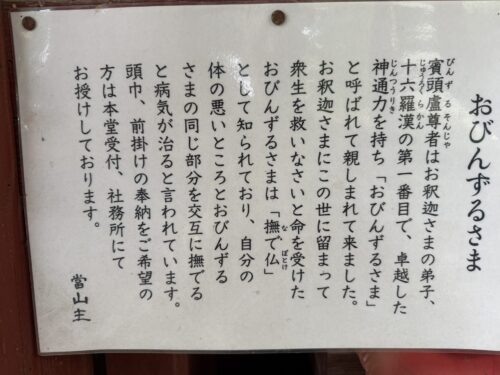 おびんずるさま
賓頭盧尊者はお釈迦さまの弟子、
十六羅漢の第一番目で、卓越した
神通力を持ち「おびんずるさま」
と呼ばれて親しまれて来ました。
お釈迦さまにこの世に留まって
衆生を救いなさいと命を受けた
おびんずるさまは「撫で仏」
として知られており、自分の
体の悪いところとおびんずる
さまの同じ部分を交互に撫でる
と病気が治ると言われています。
頭巾、前掛けの奉納をご希望の
方は本堂受付、社務所にて
お授けしております。
當山主